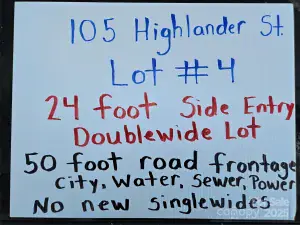 105 Highlander St.
Lot #4
24 foot Side Entry
Doublewide Lot
50 foot road frontage
City, Water, Sewer, Power
No new singlewides